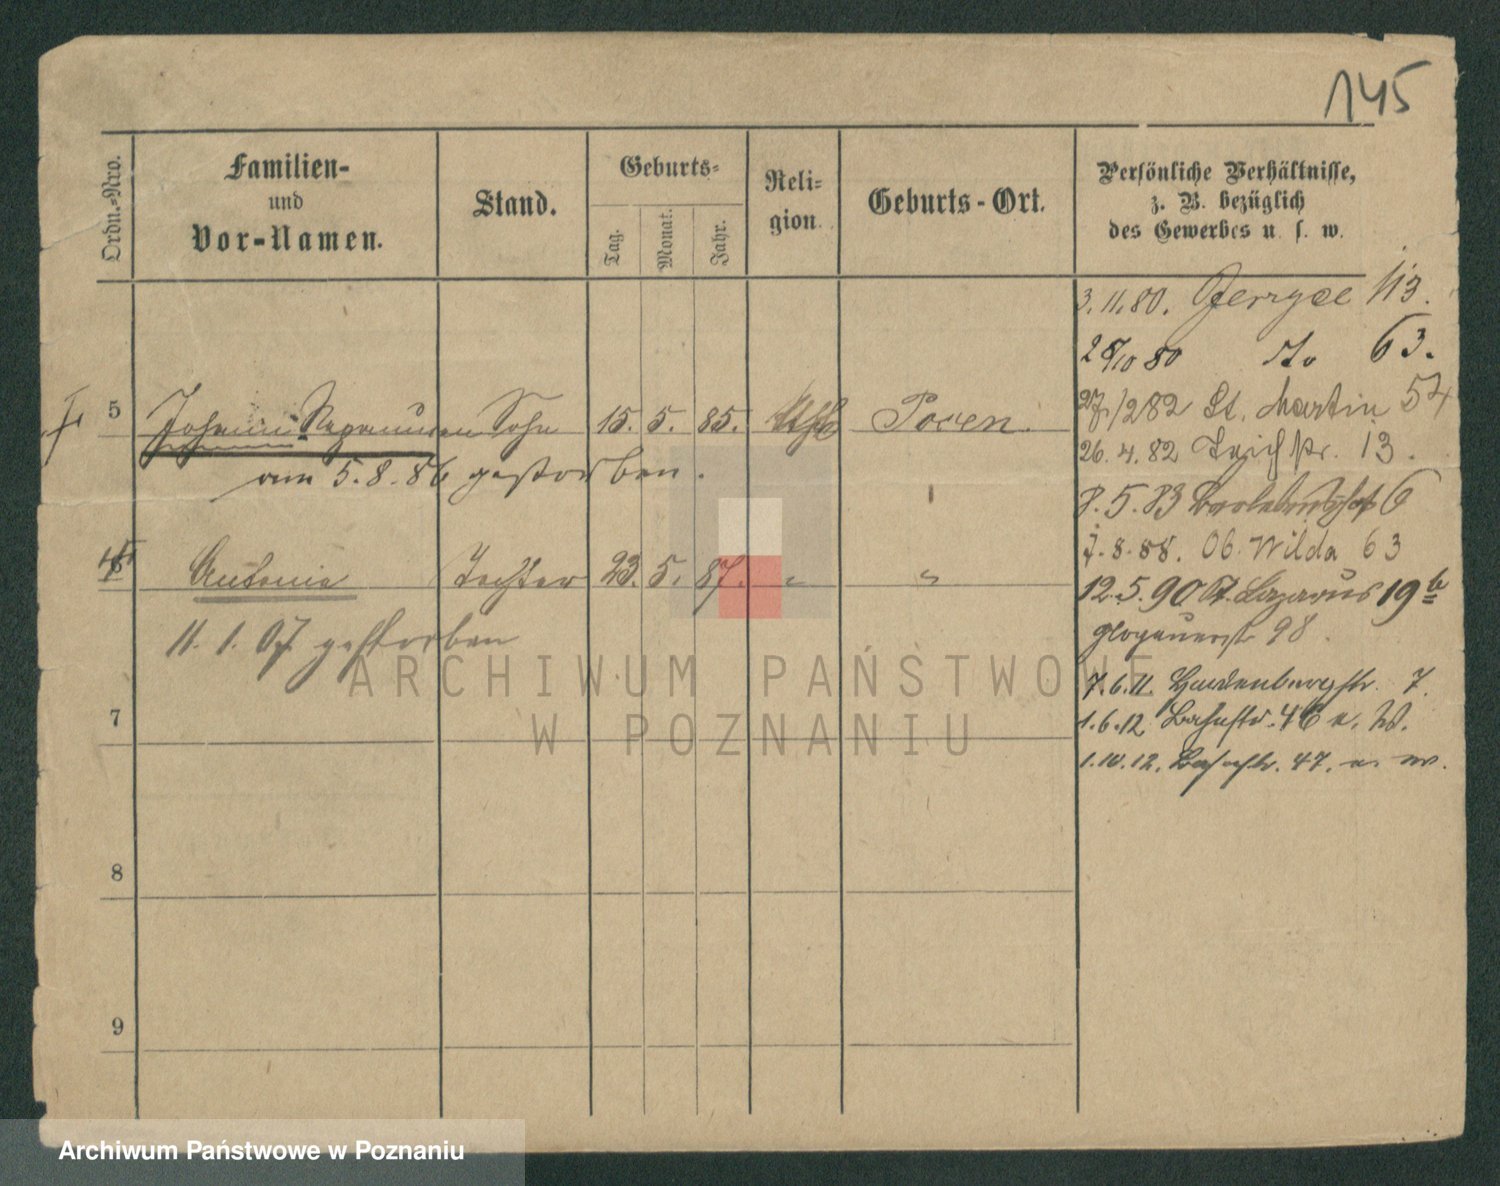 145
Ordn.-Nro.
Familien-
und
Vor-Namen.
Stand.
Geburts-
Tag.
Monat.
Jahr.
Reli-
gion.
Geburts-Ort.
Persönliche Verhältnisse,
z. B. bezüglich
des Gewerbes u. s. w.
3.11.80. Jerzyce 113.
28/10 80 do 63.
5 Johann Nepomucen Sohn 15. 5. 85. kath Posen
27/2 82 St. Martin 54
am 5.8.86 gestorben.
26.4.82 Teichstr. 13.
8.5.83 6
6 Antonie Tochter 23. 5. 87. " "
7.8.88. Ob. Wilda 63
12.5.90 St. Lazarus 19b
11.1.07 gestorben
Glogauerstr 98.
7.6.11. Hardenbergstr. 7.
7
1.6.12. Bahnstr. 46 a. W.
1.10.12. Bahnstr. 47. a. W.
8
9
ARCHIWUM PAŃSTWOWE
W POZNANIU
Archiwum Państwowe w Poznaniu